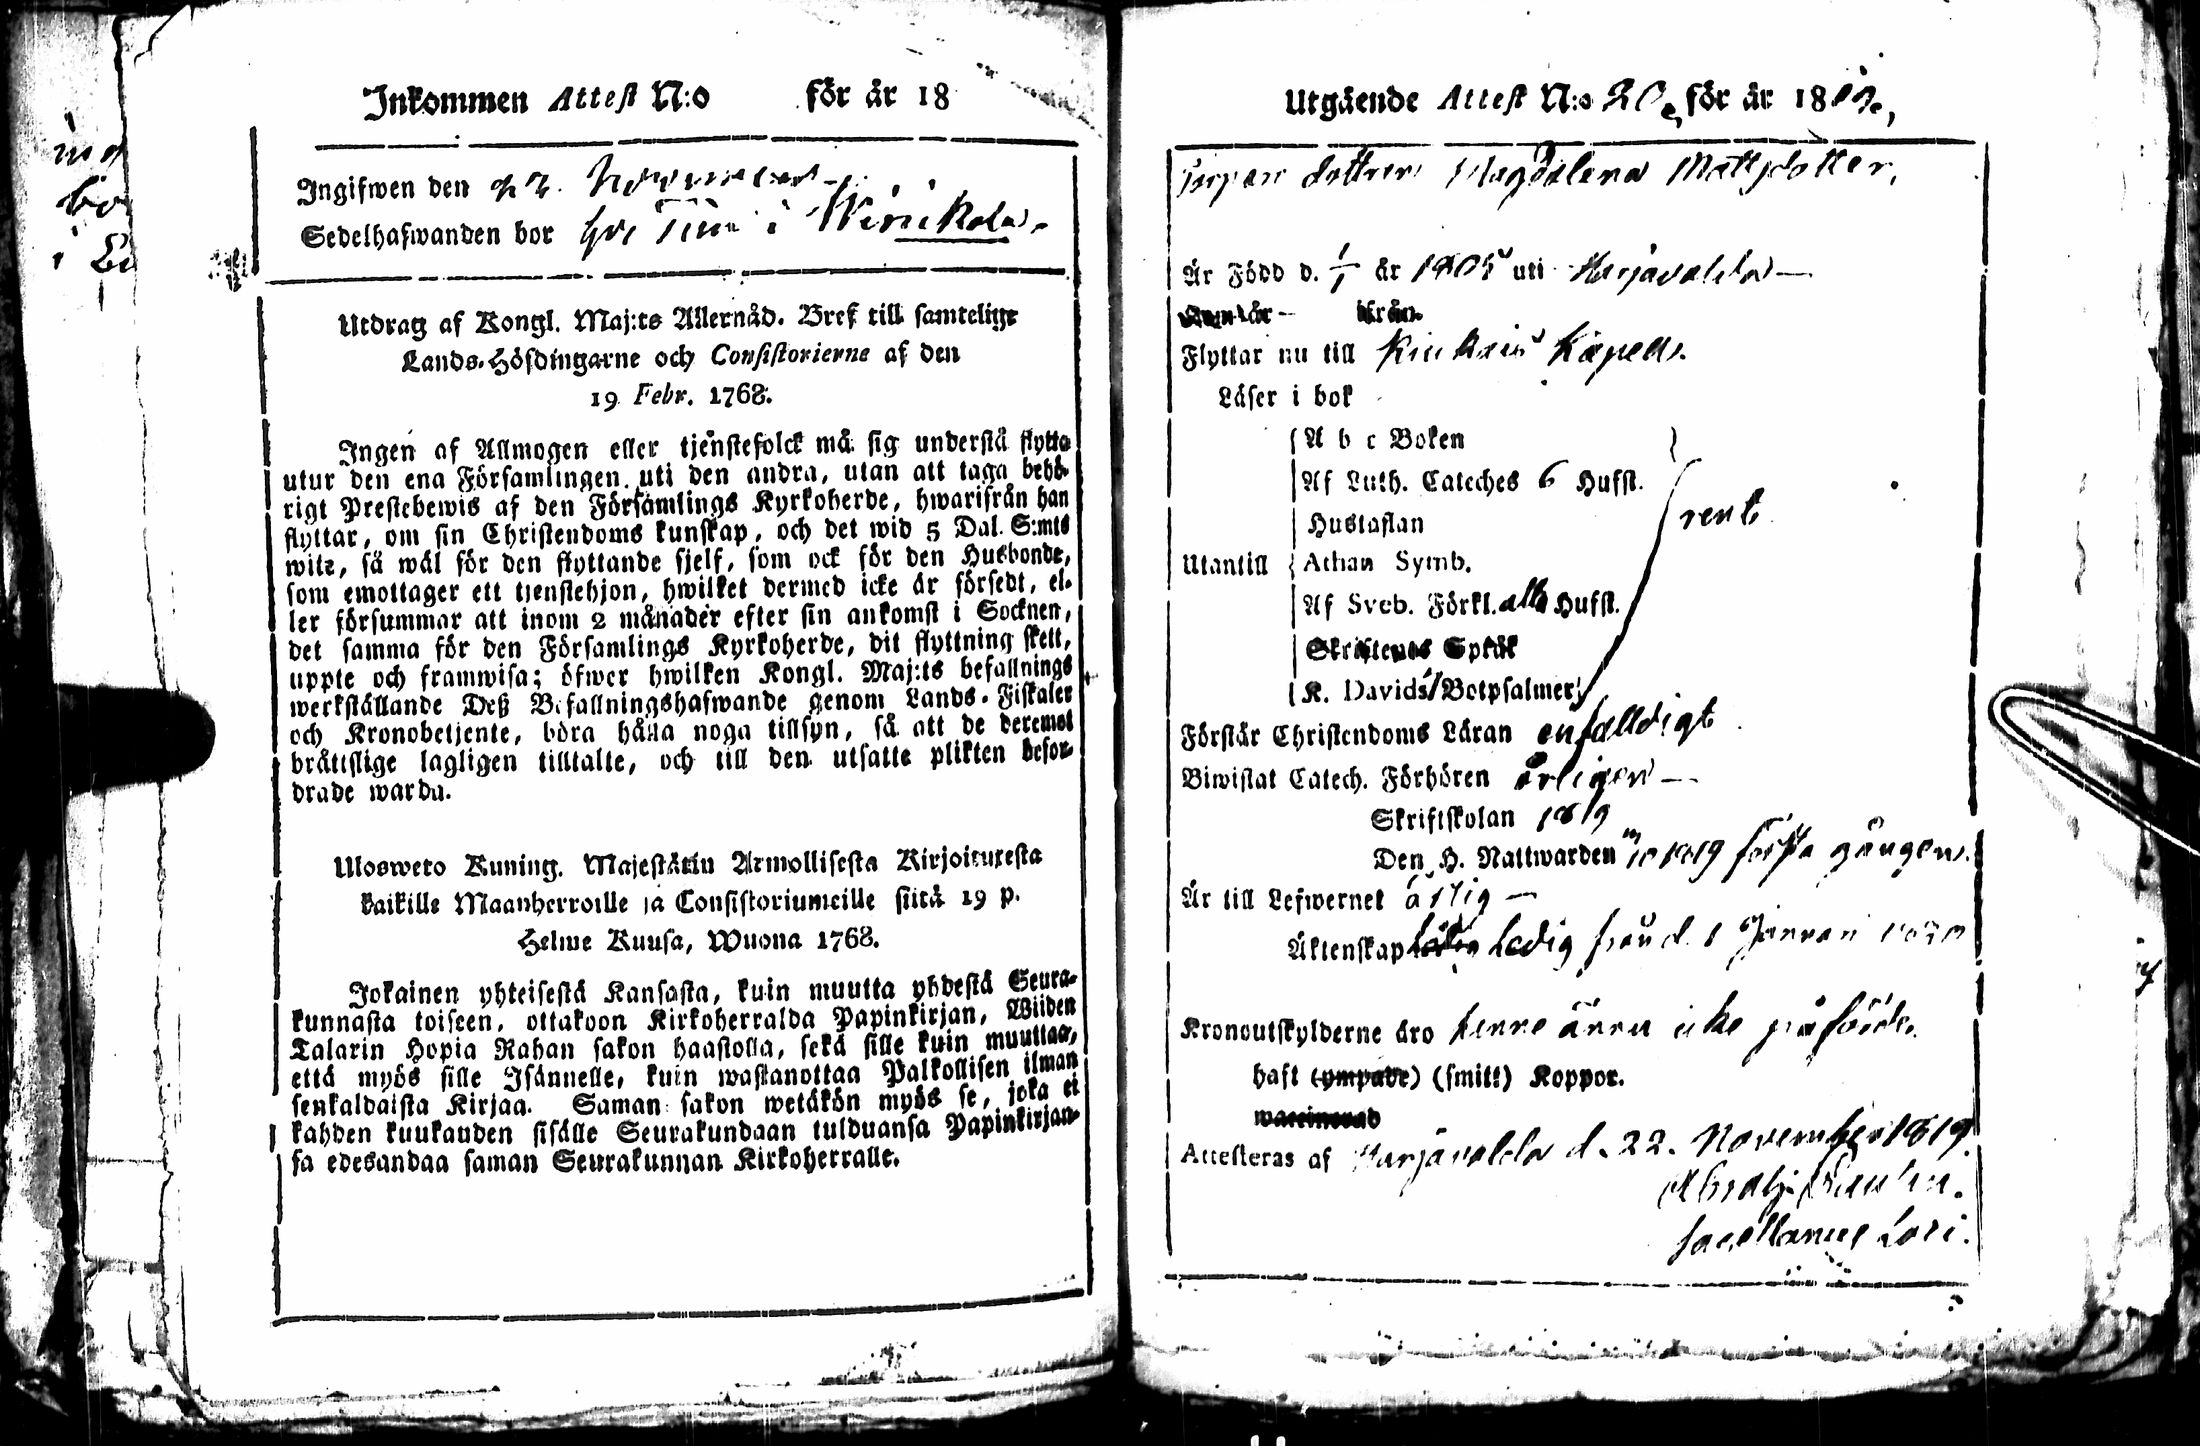 Inkommen Attest N:o för år 18
Ingifwen den 22. November
Sedelhafwanden bor hos i
Utdrag af Kongl. Maj:ts Allernåd. Bref till samtelige
Lands-Höfdingarne och Consistorierne af den
19 Febr. 1768.
Ingen af Allmogen eller tjenstefolck må sig understå flytta
utur den ena Församlingen uti den andra, utan att taga behö-
rigt Prestebewis af den Församlings Kyrkoherde, hwarifrån han
flyttar, om sin Christendoms kunskap, och det wid 5 Dal. S:mts
wite, så wäl för den flyttande sjelf, som ock för den Husbonde,
som emottager ett tjenstehjon, hwilket dermed icke är försedt, el-
ler försummar att inom 2 månader efter sin ankomst i Socknen,
det samma för den Församlings Kyrkoherde, dit flyttning skett,
uppte och framwisa; öfwer hwilken Kongl. Maj:ts befallnings
werkställande Deß Befallningshafwande genom Lands-Fiskaler
och Kronobetjente, böra hålla noga tillsyn, så att de deremot
bråttslige lagligen tilltalte, och till den utsatte plikten befor-
drade warda.
Uloswето Kuning. Majestätin Armollisesta Kirjoituxesta
kaikille Maanherroille ja Consistoriumeille siitä 19 p.
Helme Kuusa, Wuona 1768.
Jokainen yhteisestä Kansasta, kuin muutta yhdestä Seura-
kunnasta toiseen, ottakoon Kirkoherralda Papinkirjan, Wiiden
Talarin Hopia Rahan sakon haastolla, sekä sille kuin muuttaa,
että myös sille Isännelle, kuin wastanottaa Palkollisen ilman
senkaldaista Kirjaa. Saman sakon wetäkön myös se, joka ei
kahden kuukauden sisälle Seurakundaan tulduansa Papinkirjan-
sa edesandaa saman Seurakunnan Kirkoherralle.
Utgående Attest N:o 20, för år 1819,
dottren Magdalena Mattsdotter,
Är Född d. 1/1 år 1805 uti Harjavalda
år från
Flyttar nu till Kiukais Kapell.
Läser i bok
A b c Boken
Af Luth. Cateches 6 Hufst.
Hustaflan
rent
Utantill Athan Symb.
Af Sveb. Förkl. alla Hufst.
Skriftenes Språk
K. Davids 7 Botpsalmer
Förstår Christendoms Läran enfalldigt
Biwistat Catech. Förhören årligen
Skriftskolan 1819
Den H. Nattwarden 1819 första gången.
Är till Lefwernet ärlig
Äktenskap Ledig från d. 1 Januari
Kronoutskylderne äro henne ännu icke påförde.
haft (ympade) (smitt) Koppor.
waccinerad
Attesteras af Harjavalda d. 22. November 1819.
Sacellanus Loci.